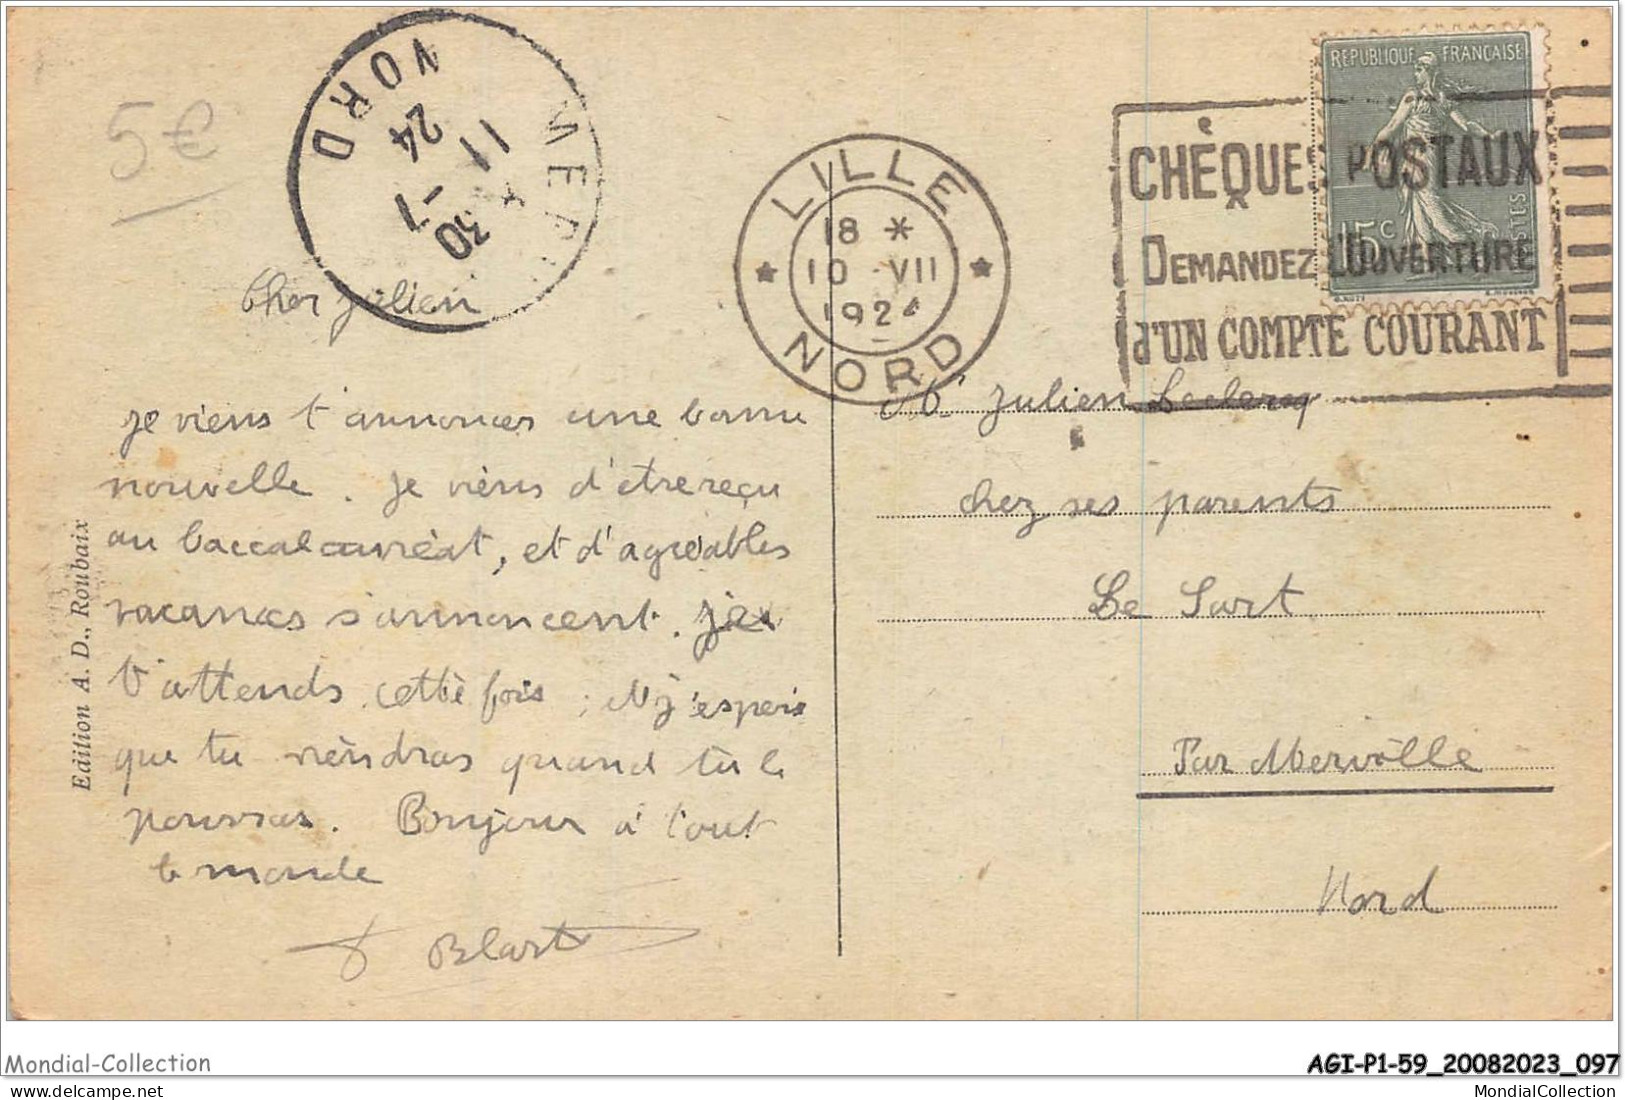 5€
NORD
MER
30
-7
11
24
LILLE
18 *
10 VII
1924
NORD
REPUBLIQUE FRANÇAISE
15c
POSTES
CHÈQUES POSTAUX
DEMANDEZ L'OUVERTURE
d'UN COMPTE COURANT
Cher Julien
je viens t'annoncer une bonne
nouvelle. je viens d'etre reçu
au baccalauréat, et d'agréables
vacances s'annoncent. je
t'attends cette fois ; j'espère
que tu viendras quand tu le
pourras. Bonjour à tout
le monde
Blart
Mr Julien Leclercq
chez ses parents
Le Sart
Par Merville
Nord
Edition A. D., Roubaix
Mondial-Collection
AGI-P1-59_20082023_097
www.delcampe.net
MondialCollection